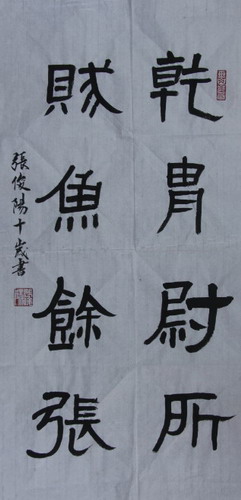 乾胄尉所
魚餘張
張俊陽十歲書